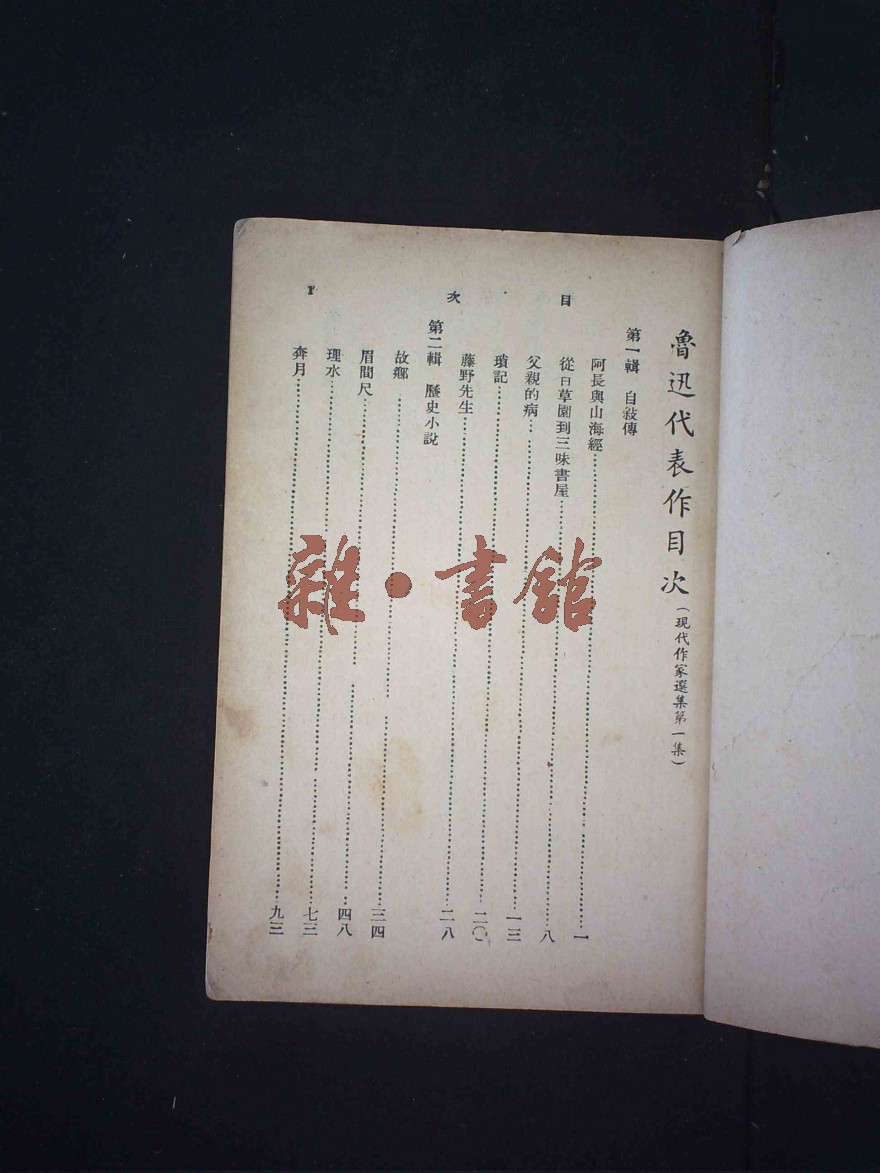 魯迅代表作目次（現代作家選集第一集）
第一輯　自敍傳
阿長與山海經…………一
從百草園到三味書屋…………八
父親的病…………一三
瑣記…………二〇
藤野先生…………二八
第二輯　歷史小說
故鄉…………三四
眉間尺…………四八
理水…………七三
奔月…………九三
目次
1
雜·書館